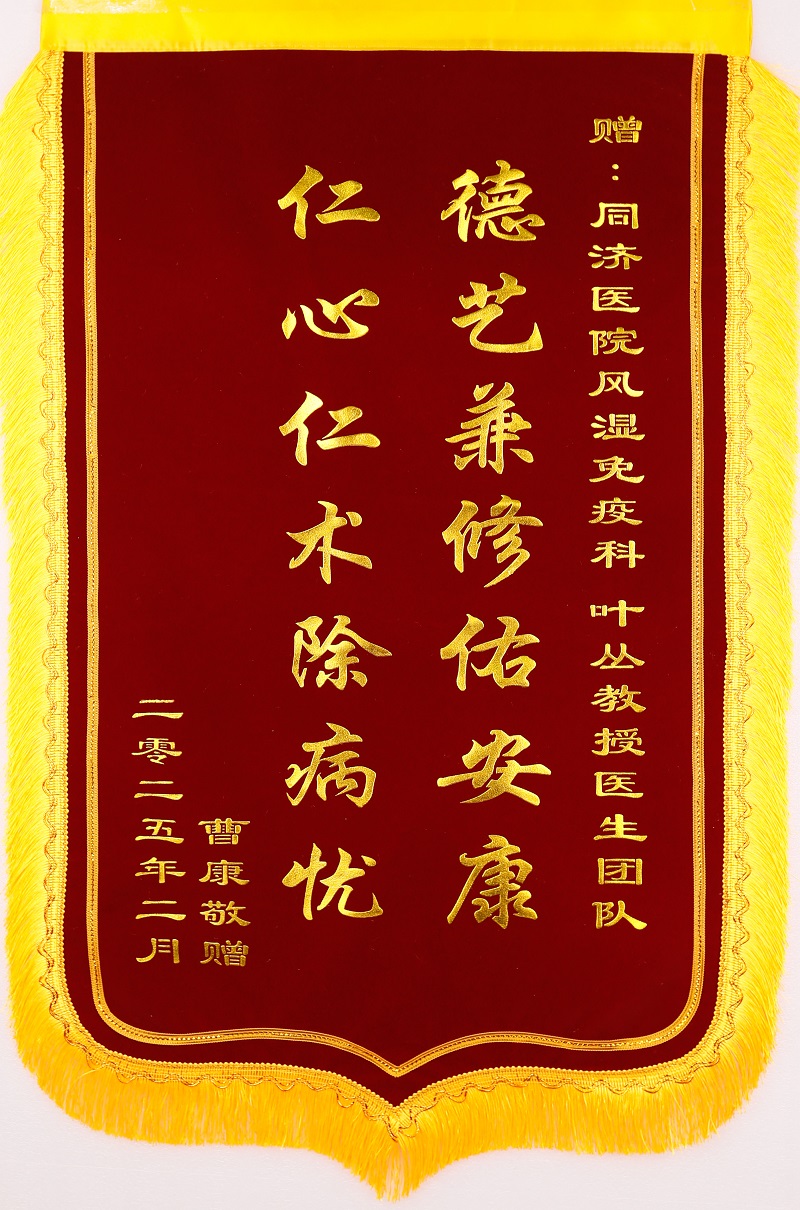 赠：同济医院风湿免疫科 叶丛教授医生团队
德艺兼修佑安康
仁心仁术除病忧
曹康敬赠
二零二五年二月